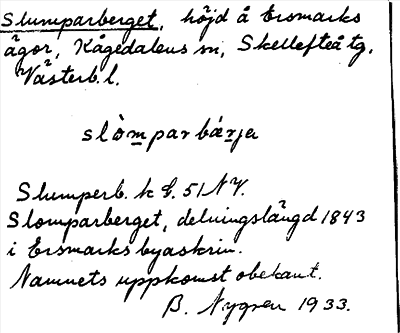 Slumparberget, höjd å Ersmarks
ägor, Kågedalens sn, Skellefteå tg,
Västerb. l.
slò̱mparbäṟja
Slumperb. k G. 51 NV.
Slomparberget, delningslängd 1843
i Ersmarks byaskrin.
Namnets uppkomst obekant.
B. Nygren 1933.